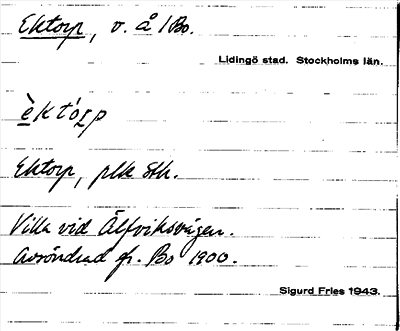 Ektorp, v. å 1 Bo.
Lidingö stad. Stockholms län.
è k t ó r p
Ektorp, plk Sth.
Villa vid Älfviksvägen.
Avsöndrad fr. Bo 1900.
Sigurd Fries 1943.